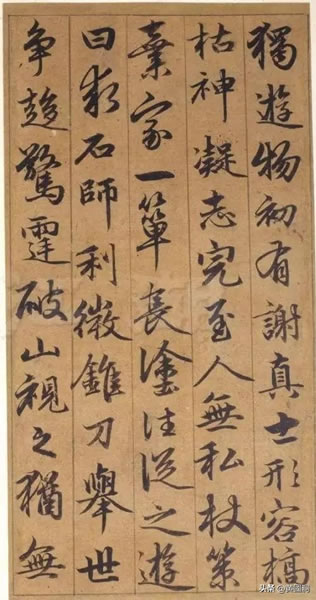 獨遊物初有謝真士形容槁
枯神凝志完至人無私杖策
棄家一簞長塗往從之遊
曰我石師利微錐刀舉世
争趍驚霆破山視之猶無
头条